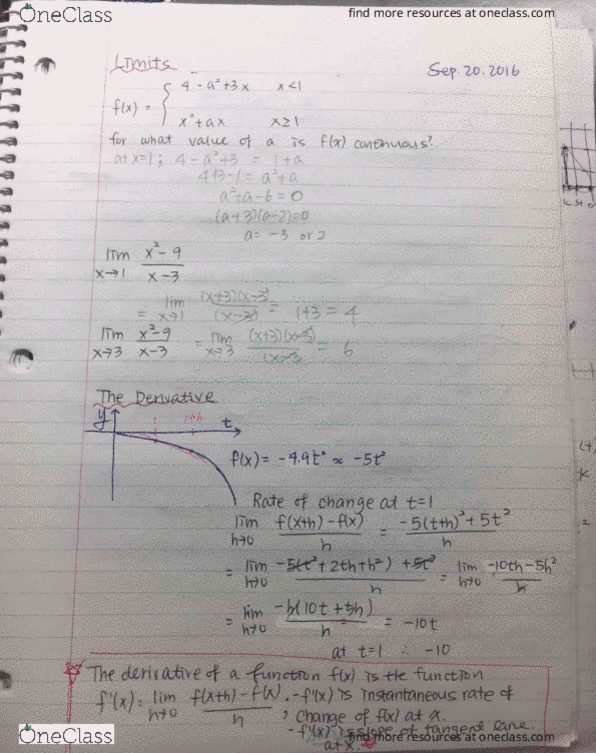 OneClass
find more resources at oneclass.com
Limits
Sep. 20. 2016
f(x) = { 4 - a² + 3x   x < 1
x² + ax   x ≥ 1
for what value of a is f(x) continuous?
at x=1; 4 - a² + 3 = 1 + a
4+3-1 = a² + a
a² + a - 6 = 0
(a+3)(a-2)=0
a = -3 or 2
lim x→1 (x² - 9)/(x - 3)
= lim x→1 (x+3)(x-3)/(x-3) = 1+3 = 4
lim x→3 (x²-9)/(x-3) = lim x→3 (x+3)(x-3)/(x-3) = 6
The Derivative
y
1+h
t
f(x) = -4.9t² ≈ -5t²
Rate of change at t=1
lim h→0 (f(x+h) - f(x))/h = (-5(t+h)² + 5t²)/h
= lim h→0 (-5(t² + 2th + h²) + 5t²)/h = lim h→0 (-10th - 5h²)/h
= lim h→0 -h(10t + 5h)/h = -10t
at t=1 ∴ -10
The derivative of a function f(x) is the function
f'(x) = lim h→0 (f(x+h) - f(x))/h . - f'(x) is instantaneous rate of
change of f(x) at x.
- f'(x) is slope of tangent line
at x.
OneClass
find more resources at oneclass.com